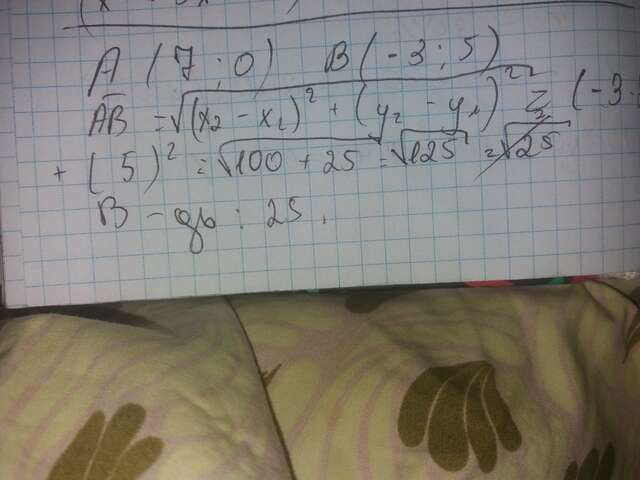 A (7; 0) B (-3; 5)
AB = √(x₂ - x₁)² + (y₂ - y₁)² = (-3
+ (5)² = √100 + 25 = √125 = √25
В - дь: 25.